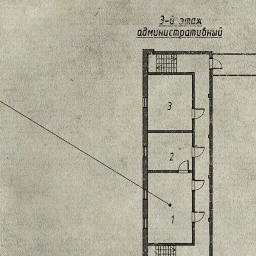 3-й этаж
административный
3
2
1